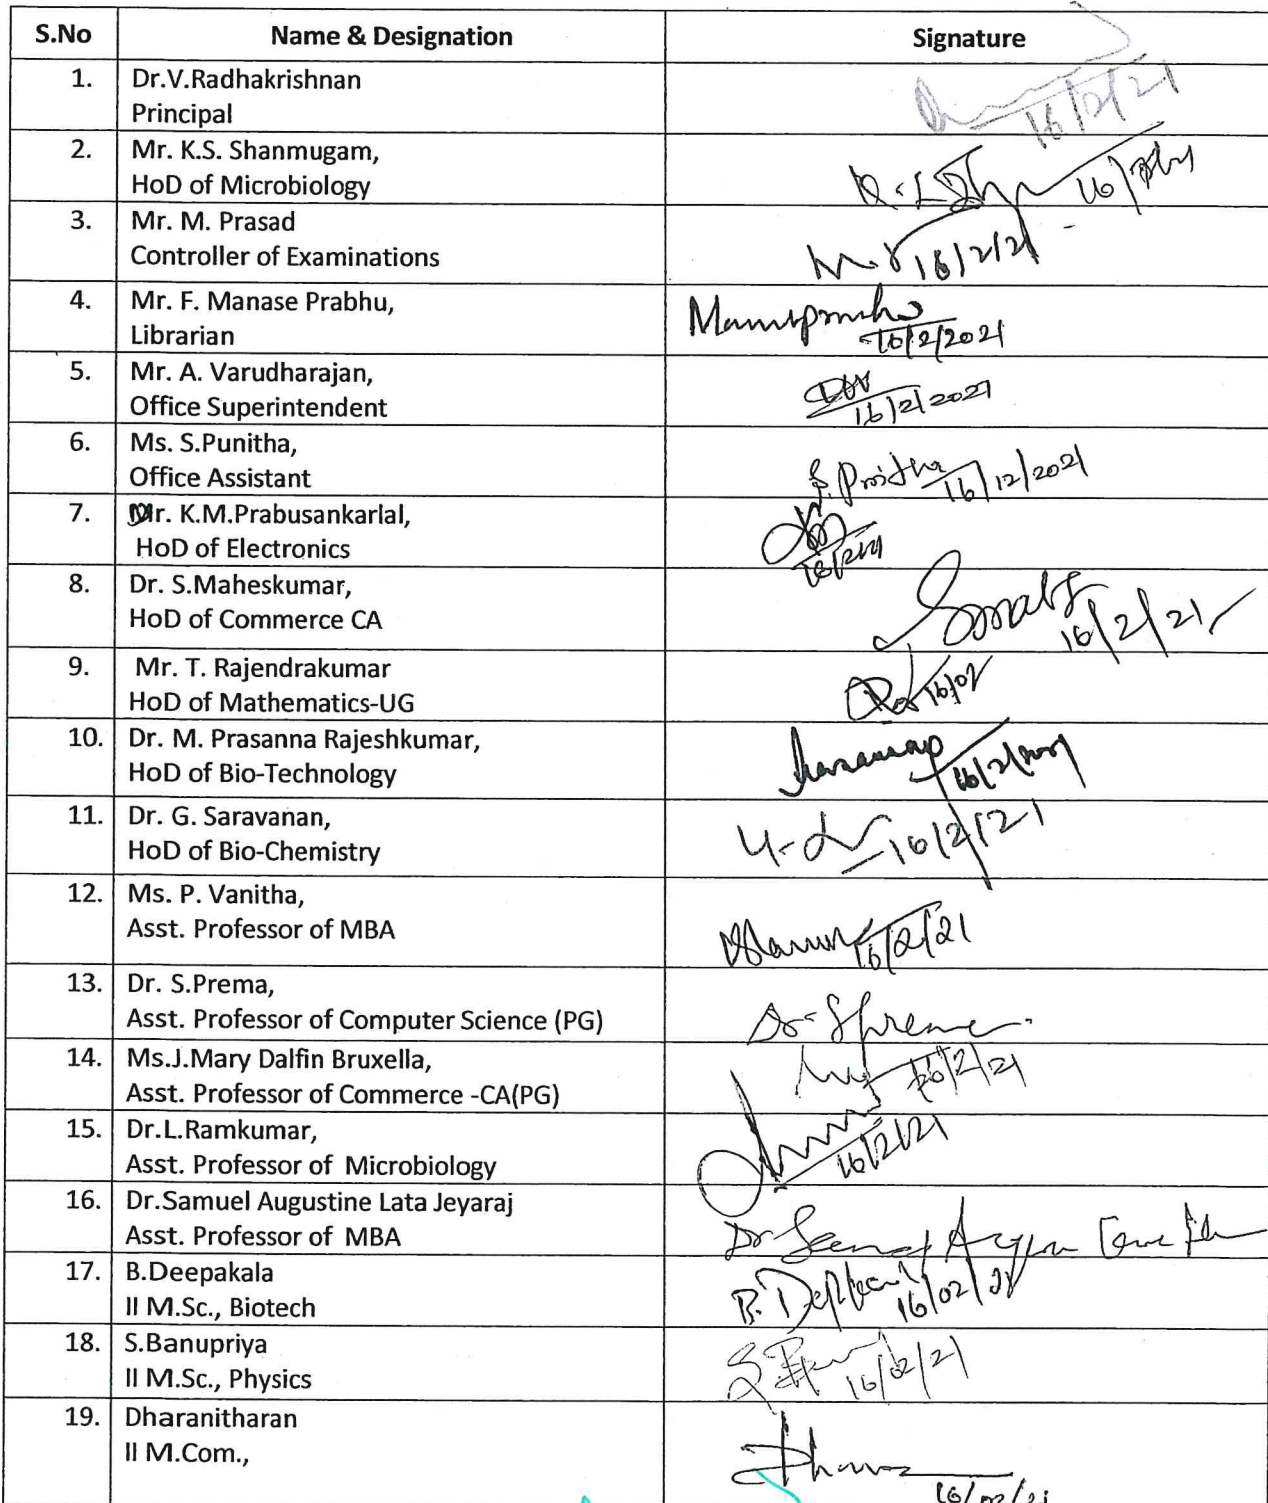 S.No Name & Designation Signature
1. Dr.V.Radhakrishnan
Principal
16/2/21
2. Mr. K.S. Shanmugam,
HoD of Microbiology
3. Mr. M. Prasad
Controller of Examinations
16/2/21
4. Mr. F. Manase Prabhu,
Librarian
16/2/2021
5. Mr. A. Varudharajan,
Office Superintendent
16/2/2021
6. Ms. S.Punitha,
Office Assistant
16/12/2021
7. Dr. K.M.Prabusankarlal,
HoD of Electronics
16/2/21
8. Dr. S.Maheskumar,
HoD of Commerce CA
16/2/21
9. Mr. T. Rajendrakumar
HoD of Mathematics-UG
16/02
10. Dr. M. Prasanna Rajeshkumar,
HoD of Bio-Technology
16/2/2021
11. Dr. G. Saravanan,
HoD of Bio-Chemistry
16/2/21
12. Ms. P. Vanitha,
Asst. Professor of MBA
16/2/21
13. Dr. S.Prema,
Asst. Professor of Computer Science (PG)
14. Ms.J.Mary Dalfin Bruxella,
Asst. Professor of Commerce -CA(PG)
16/2/21
15. Dr.L.Ramkumar,
Asst. Professor of Microbiology
16/2/21
16. Dr.Samuel Augustine Lata Jeyaraj
Asst. Professor of MBA
17. B.Deepakala
II M.Sc., Biotech
16/02/21
18. S.Banupriya
II M.Sc., Physics
16/02/21
19. Dharanitharan
II M.Com.,
16/02/21